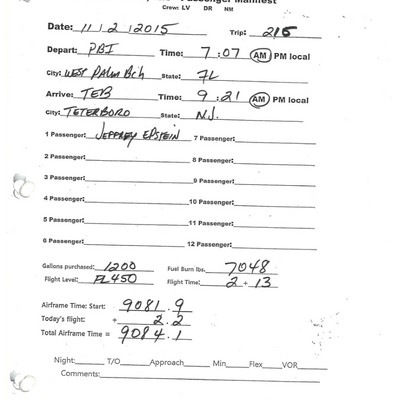 Passenger Manifest
Crew: LV DR NM
Date: 11/2/2015 Trip: 215
Depart: PBI Time: 7:07 AM PM local
City: West Palm Bch State: FL
Arrive: TEB Time: 9:21 AM PM local
City: TETERBORO State: N.J.
1 Passenger: JEFFREY EPSTEIN 7 Passenger:
2 Passenger: 8 Passenger:
3 Passenger: 9 Passenger:
4 Passenger: 10 Passenger:
5 Passenger: 11 Passenger:
6 Passenger: 12 Passenger:
Gallons purchased: 1200 Fuel Burn lbs. 7048
Flight Level: FL450 Flight Time: 2 + 13
Airframe Time: Start: 9081.9
Today's flight: + 2.2
Total Airframe Time = 9084.1
Night: T/O Approach Min Flex VOR
Comments: